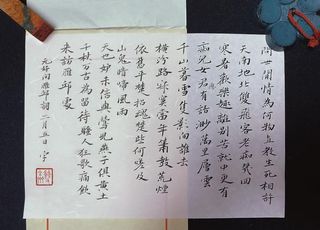 問世間情為何物直教生死相許
天南地北雙飛客老翅幾回
寒暑歡樂趣離別苦就中更有
痴兒女君應有語渺萬里層雲
千山暮雪隻影向誰去
橫汾路寂寞當年簫鼓荒煙
依舊平楚招魂楚些何嗟及
山鬼暗啼風雨
天也妒未信與鶯兒燕子俱黃土
千秋萬古為留待騷人狂歌痛飲
來訪雁邱處
元好問雁邱詞 二月五日